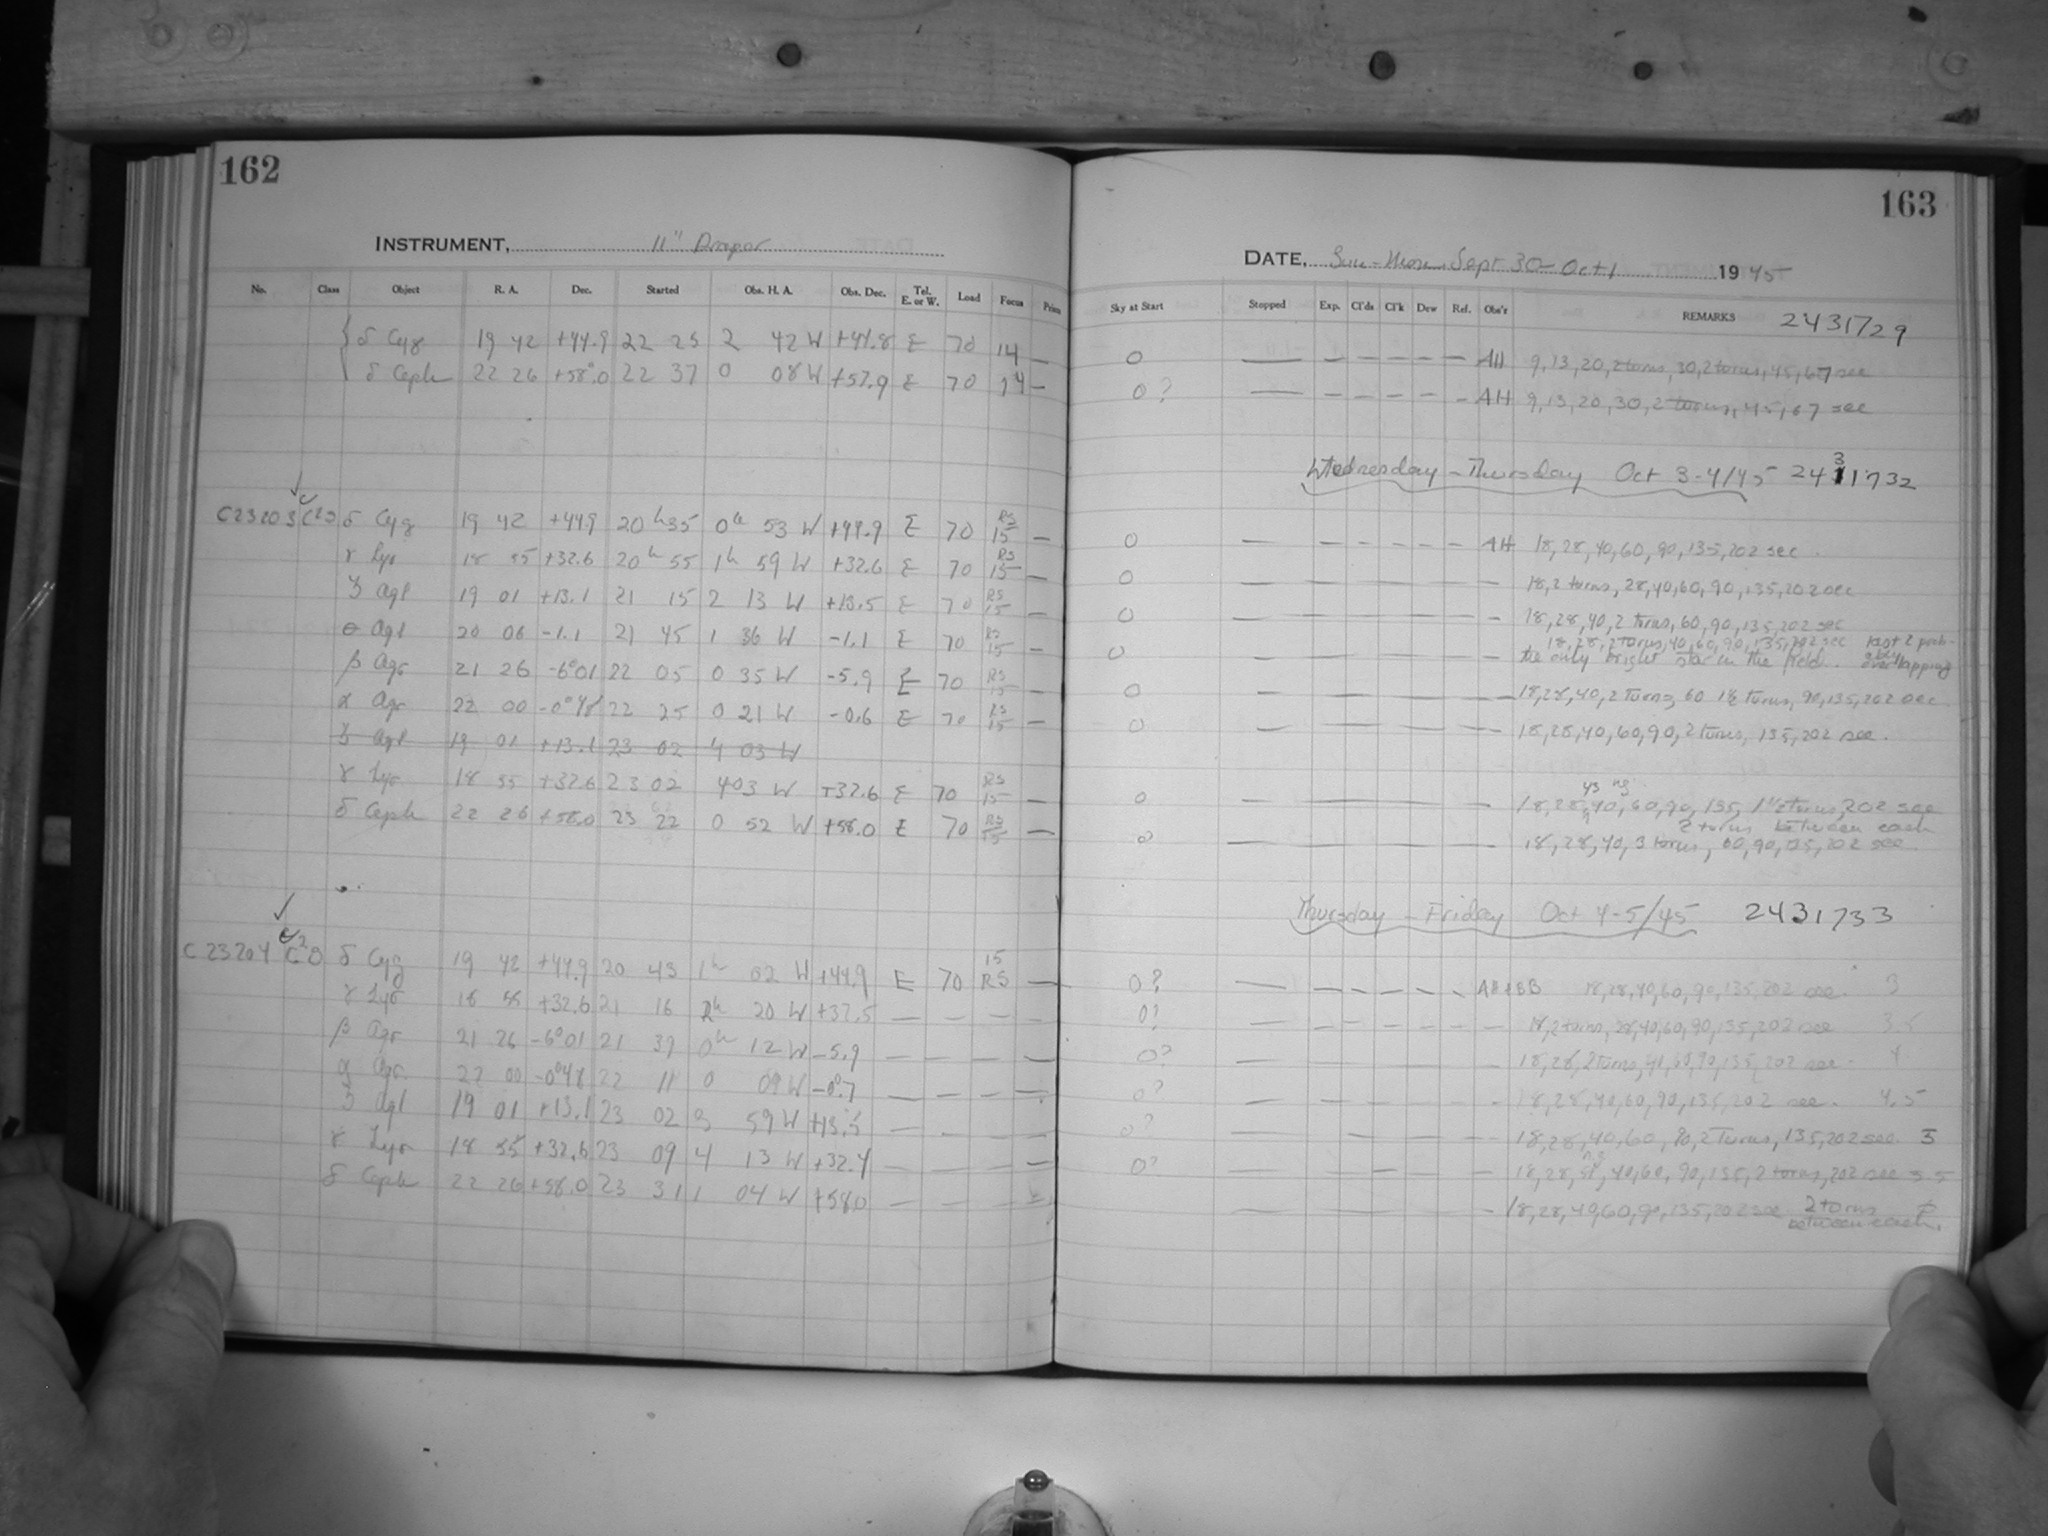 162
INSTRUMENT, 11" Draper
No. Class Object R. A. Dec. Started Obs. H. A. Obs. Dec. Tel. E. or W. Load Focus Prism
{ δ Cyg 19 42 +44.9 22 25 2 42 W +44.8 E 70 14 —
δ Ceph 22 26 +58.0 22 37 0 08 W +57.9 E 70 14 —
C23203 δ Cyg 19 42 +44.9 20h 35 0h 53 W +44.9 E 70 RS 15 —
γ Lyr 18 55 +32.6 20h 55 1h 59 W +32.6 E 70 RS 15 —
ζ Aql 19 01 +13.1 21 15 2 13 W +13.5 E 70 RS 15 —
θ Aql 20 06 -1.1 21 45 1 36 W -1.1 E 70 RS 15 —
β Aqr 21 26 -6°01 22 05 0 35 W -5.9 E 70 RS 15
α Aqr 22 00 -0°48 22 25 0 21 W -0.6 E 70 RS 15 —
ζ Aql 19 01 +13.1 23 02 4 03 W
γ Lyr 18 55 +32.6 23 02 4 03 W +32.6 E 70 RS 15 —
δ Ceph 22 26 +58.0 23 22 0 52 W +58.0 E 70 RS 15 —
C23204 δ Cyg 19 42 +44.9 20 43 1h 02 W +44.9 E 70 15 RS —
γ Lyr 18 55 +32.6 21 16 2h 20 W +32.5 — — — —
β Aqr 21 26 -6°01 21 39 0h 12 W -5.9 — — — —
α Aqr 22 00 -0°48 22 11 0 09 W -0°.7 — — — —
ζ Aql 19 01 +13.1 23 02 3 59 W — — — —
γ Lyr 18 55 +32.6 23 09 4 13 W +32.4 — — — —
δ Ceph 22 26 +58.0 23 31 1 04 W +58.0 — — —
163
DATE, Sun-Mon. Sept 30-Oct 1 1945
Sky at Start Stopped Exp. Cl'ds Cl'k Dew Ref. Obs'r REMARKS 2431729
0 — — — — — — AH 9,13,20,2 turns,30,2 turns,45,67 sec
0? — — — — — — AH 9,13,20,30,2 turns,45,67 sec
Wednesday - Thursday Oct 3-4/45 2431732
0 — — — — — — AH 18,28,40,60,90,135,202 sec.
0 — — — — — 18,2 turns,28,40,60,90,135,202 sec
0 — — — — — 18,28,40,2 turns,60,90,135,202 sec
0 — — — — — 18,28,2 turns,40,60,90,135,202 sec last 2 probably overlapping
the only bright star in the field.
0 — — — — — 18,28,40,2 turns 60 1½ turns,90,135,202 sec
0 — — — — — 18,28,40,60,90,2 turns,135,202 sec.
0 — — — — — 18,28,40,60,90,135,1½ turns,202 sec
2 turns between each
0 — — — — — 18,28,40,3 turns,60,90,135,202 sec.
Thursday - Friday Oct 4-5/45 2431733
0? — — — — — — AH+BB 18,28,40,60,90,135,202 sec. 3
0? — — — — — 18,2 turns,28,40,60,90,135,202 sec 3.5
0? — — — — — 18,28,2 turns,41,60,90,135,202 sec. 4
0? — — — — — 18,28,40,60,90,135,202 sec. 4.5
0? — — — — 18,28,40,60,90,2 turns,135,202 sec. 5
0? — — — — 18,28,40,60,90,135,2 turns,202 sec 5.5
— — — — — 18,28,40,60,90,135,202 sec 2 turns
between each.